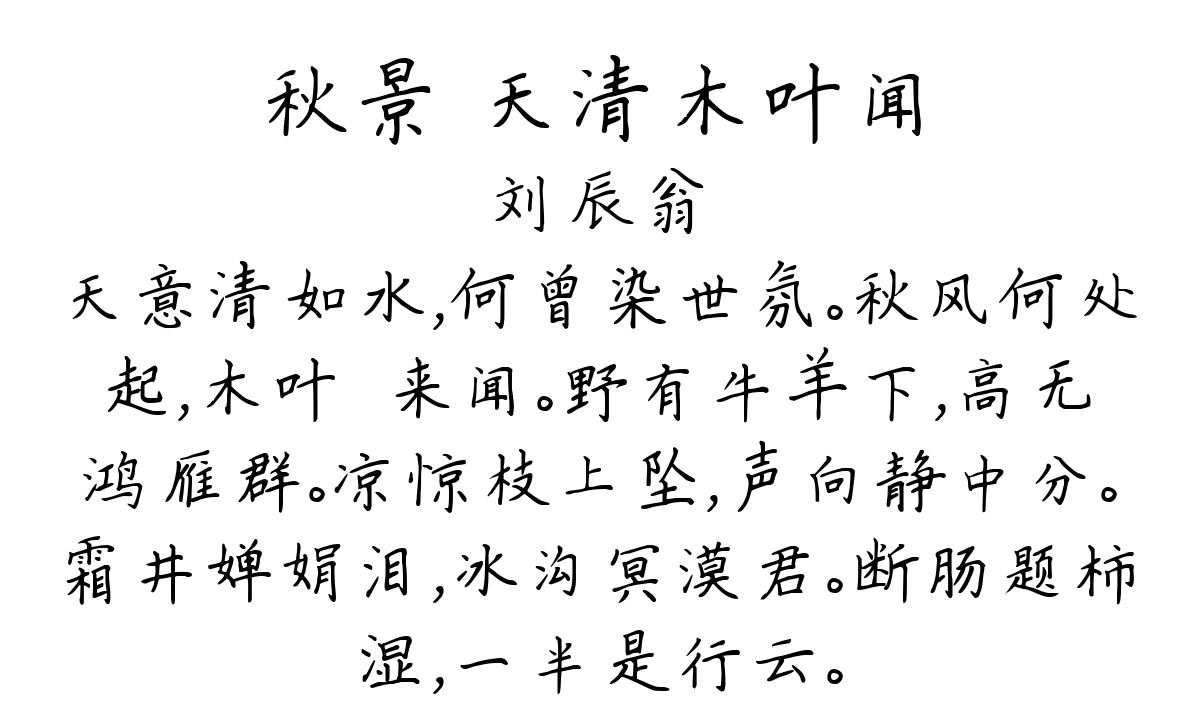 秋景 天清木叶闻
刘辰翁
天意清如水,何曾染世氛。秋风何处
起,木叶 来闻。野有牛羊下,高无
鸿雁群。凉惊枝上坠,声向静中分。
霜井婵娟泪,冰沟冥漠君。断肠题柿
湿,一半是行云。